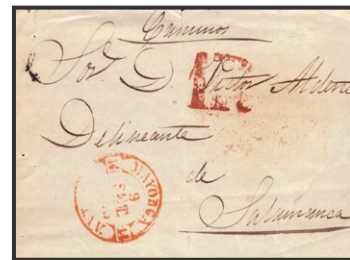 Caminos
Sor D. Victor Aldene
Delineante
de
Salamanca
MAYORGA
6
SET